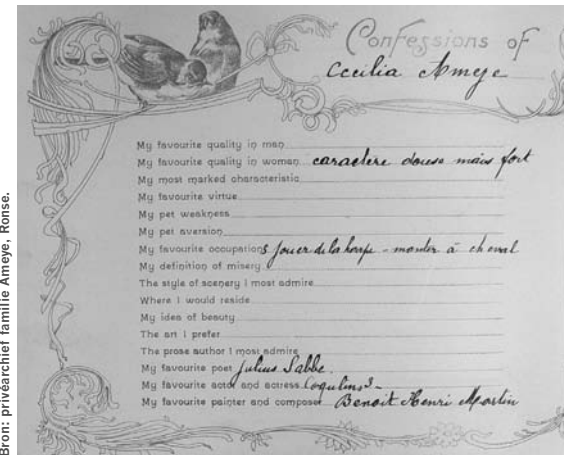 Bron: privéarchief familie Ameye, Ronse.
Confessions of
Cecilia Ameye
My favourite quality in man
My favourite quality in woman caractère douse mais fort
My most marked characteristic
My favourite virtue
My pet weakness
My pet aversion
My favourite occupations jouer de la harpe - monter à cheval
My definition of misery
The style of scenery I most admire
Where I would reside
My idea of beauty
The art I prefer
The prose author I most admire
My favourite poet Julius Sabbe.
My favourite actor and actress
My favourite painter and composer Benoit Henri